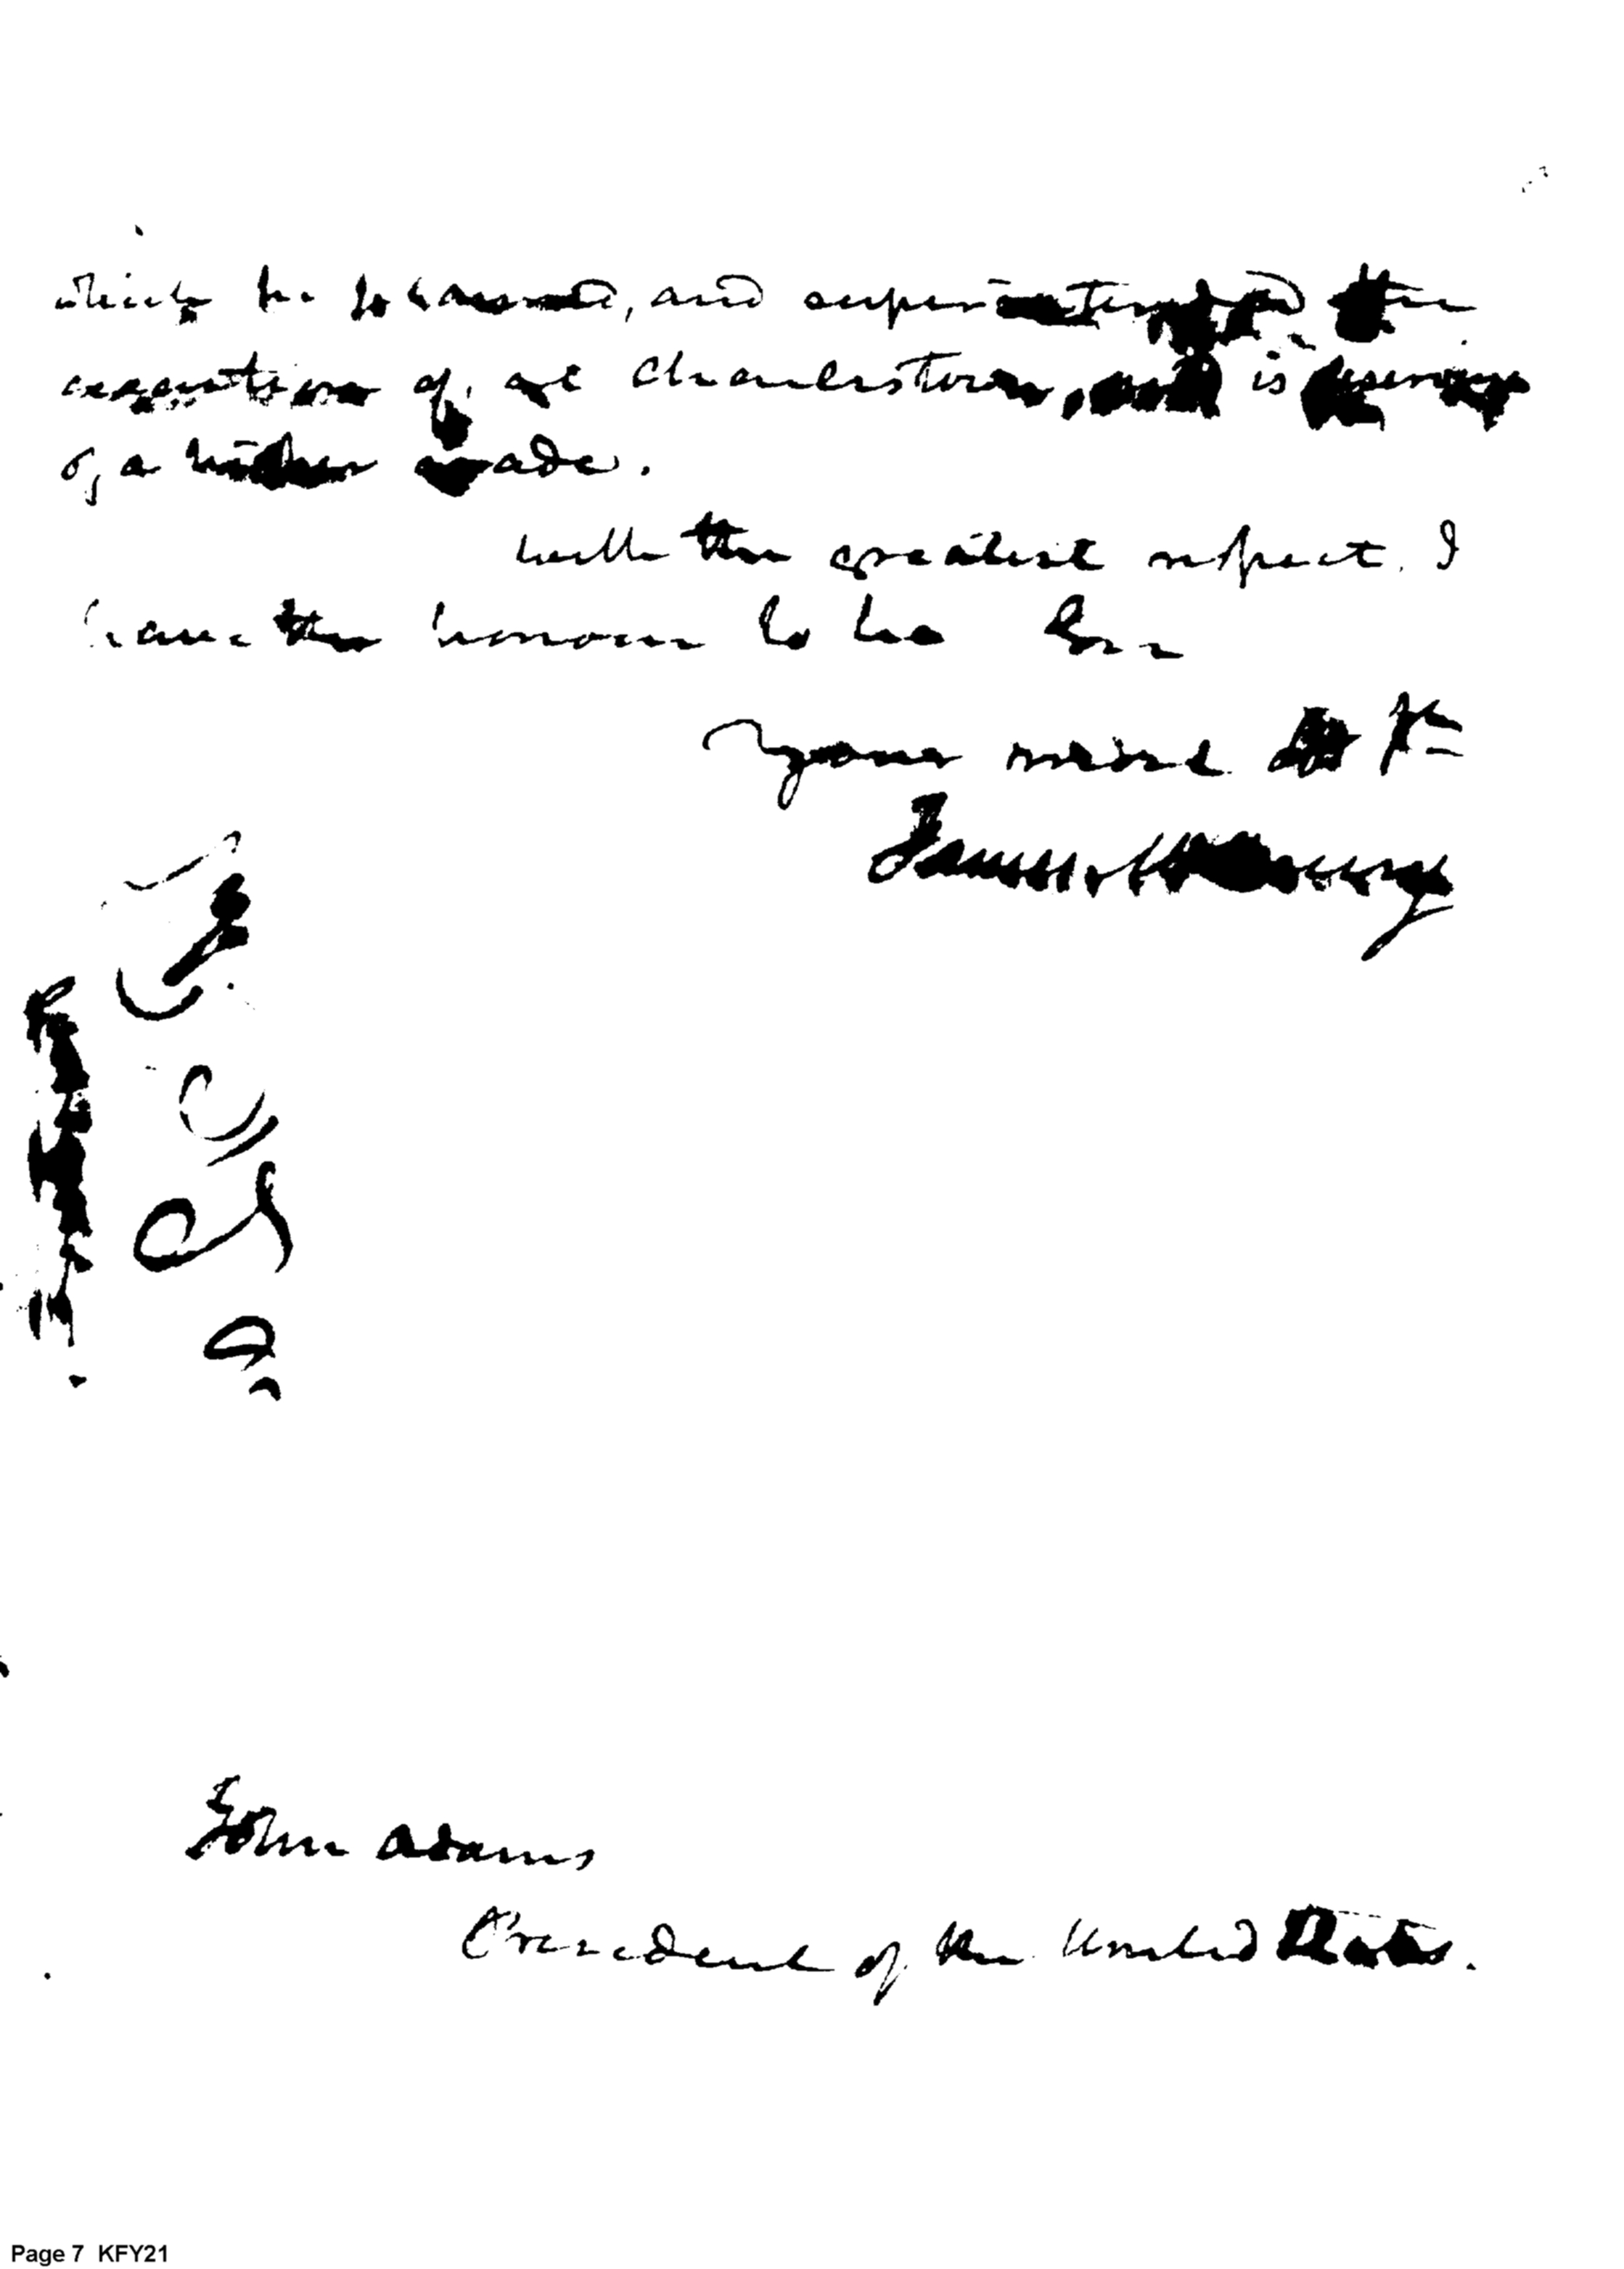 which he     , and superintended the
execution of, at Charlestown, and is
of a higher grade.
with the greatest respect, I
have the honour to be Sir
Your most
James McHenry
John Adams
President of the United States.
Page 7 KFY21